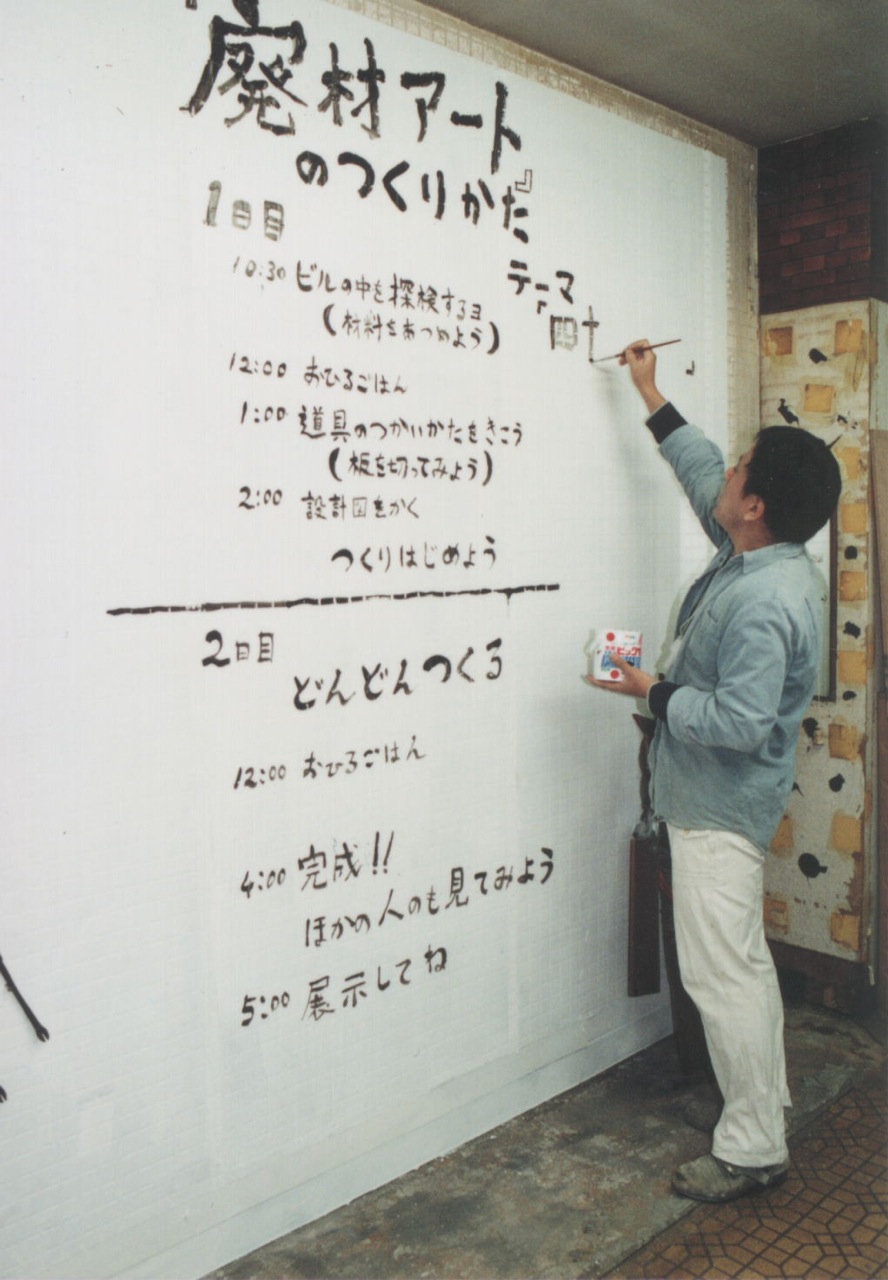 『廃材アート
のつくりかた』
1日目
10:30 ビルの中を探検するヨ
(材料をあつめよう)
12:00 おひるごはん
1:00 道具のつかいかたをきこう
(板を切ってみよう)
2:00 設計図をかく
つくりはじめよう
2日目
どんどんつくる
12:00 おひるごはん
4:00 完成!!
ほかの人のも見てみよう
5:00 展示してね
テーマ
ビッグ